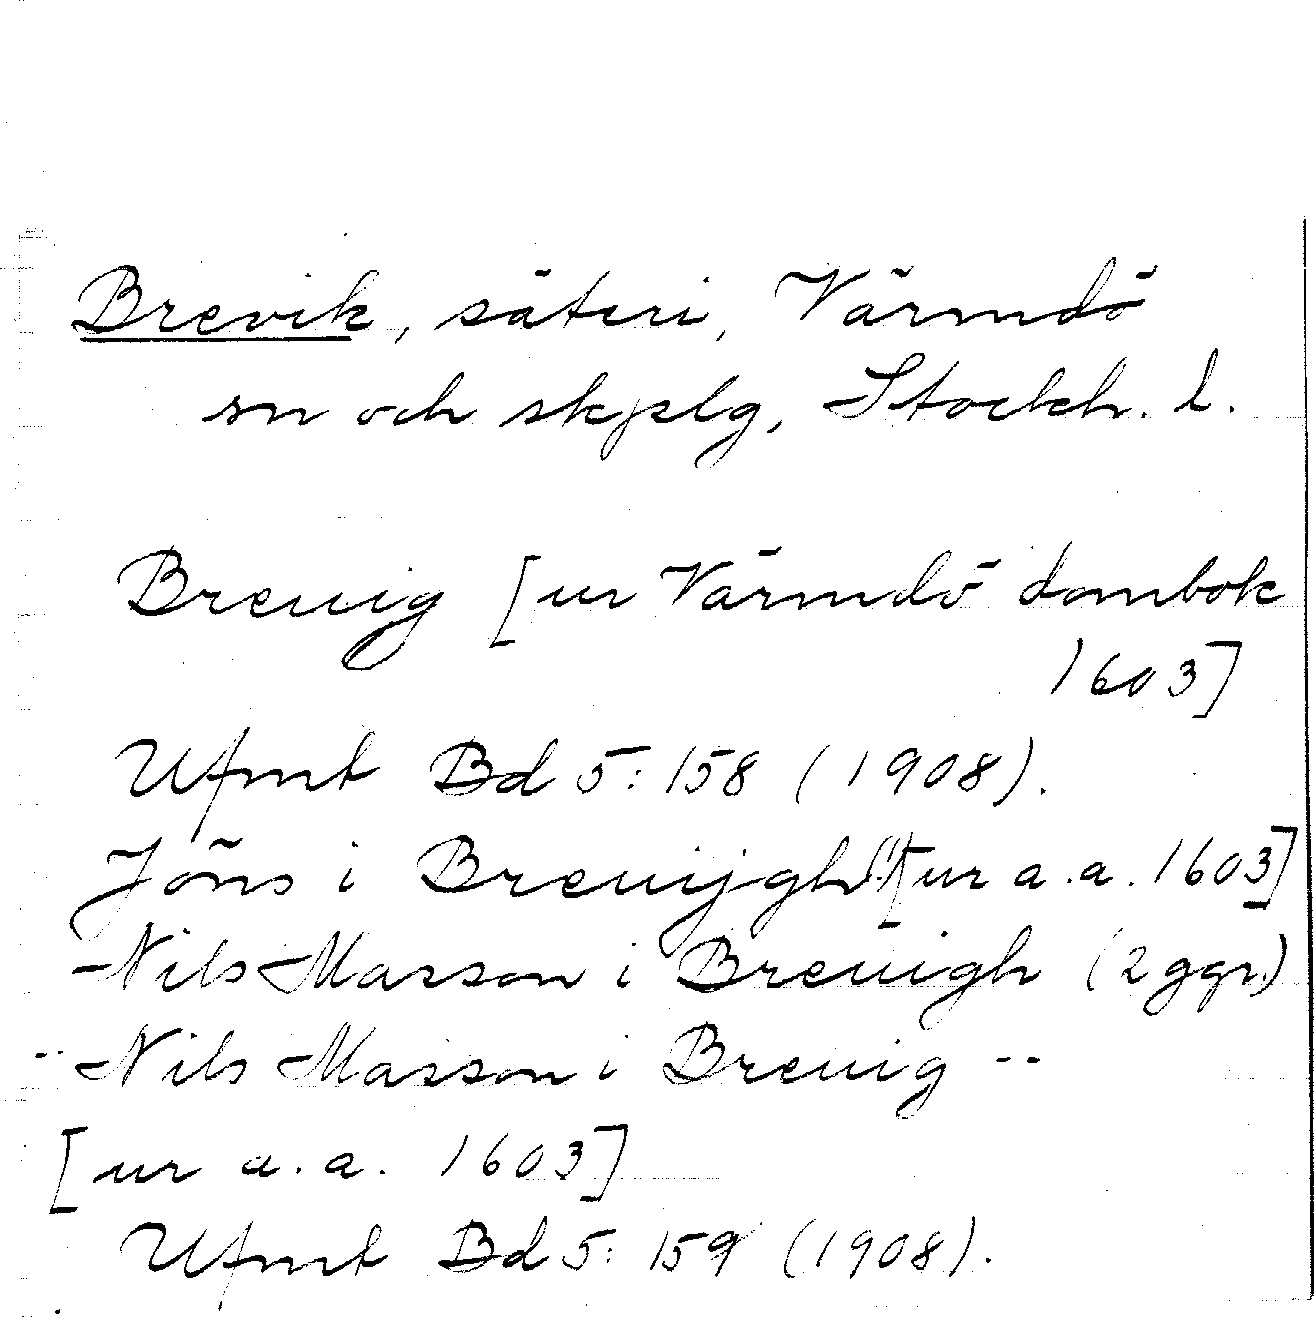 Brevik, säteri, Värmdö
sn och skplg, Stockh. l.
Breuig [ur Värmdö dombok
1603]
Ufmt Bd 5: 158 (1908).
Jöns i Breuijgh [ur a.a. 1603]
Nils Masson i Breuigh (2 ggr)
-- Nils Masson i Breuig --
[ur a.a. 1603]
Ufmt Bd 5: 159 (1908).